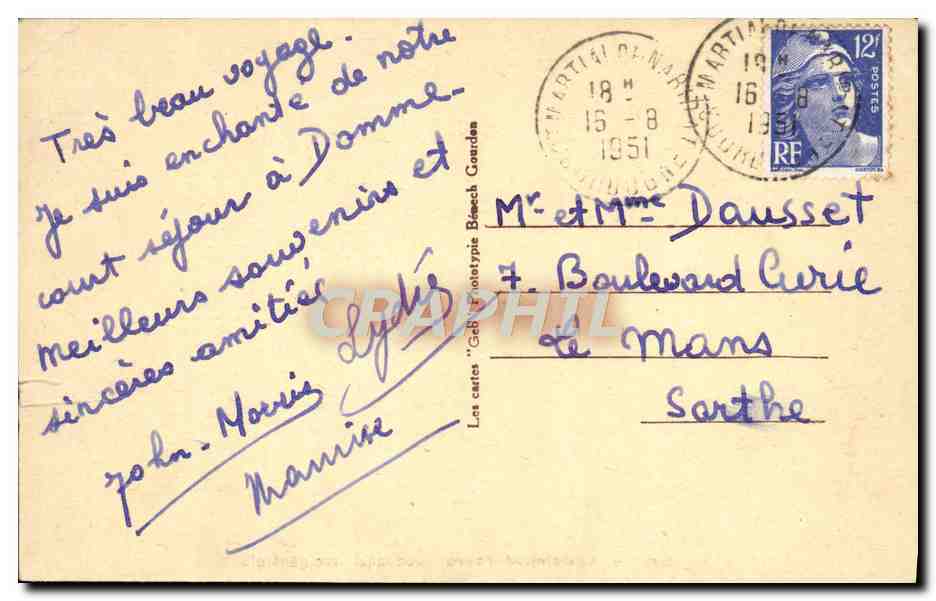 Très beau voyage.
Je suis enchanté de notre
court séjour à Domme -
meilleurs souvenirs et
sincères amitiés
Lydie
John - Morris
Maurise
Les cartes "Geb" Phototypie Bénech Gourdon
ST MARTIAL DE NABIRAT
DORDOGNE
18 H
16 - 8
1951
19 H
16 - 8
1951
12F
POSTES
RF
Mr et Mme Dausset
7. Boulevard Curie
Le Mans
Sarthe
CRAPHIL